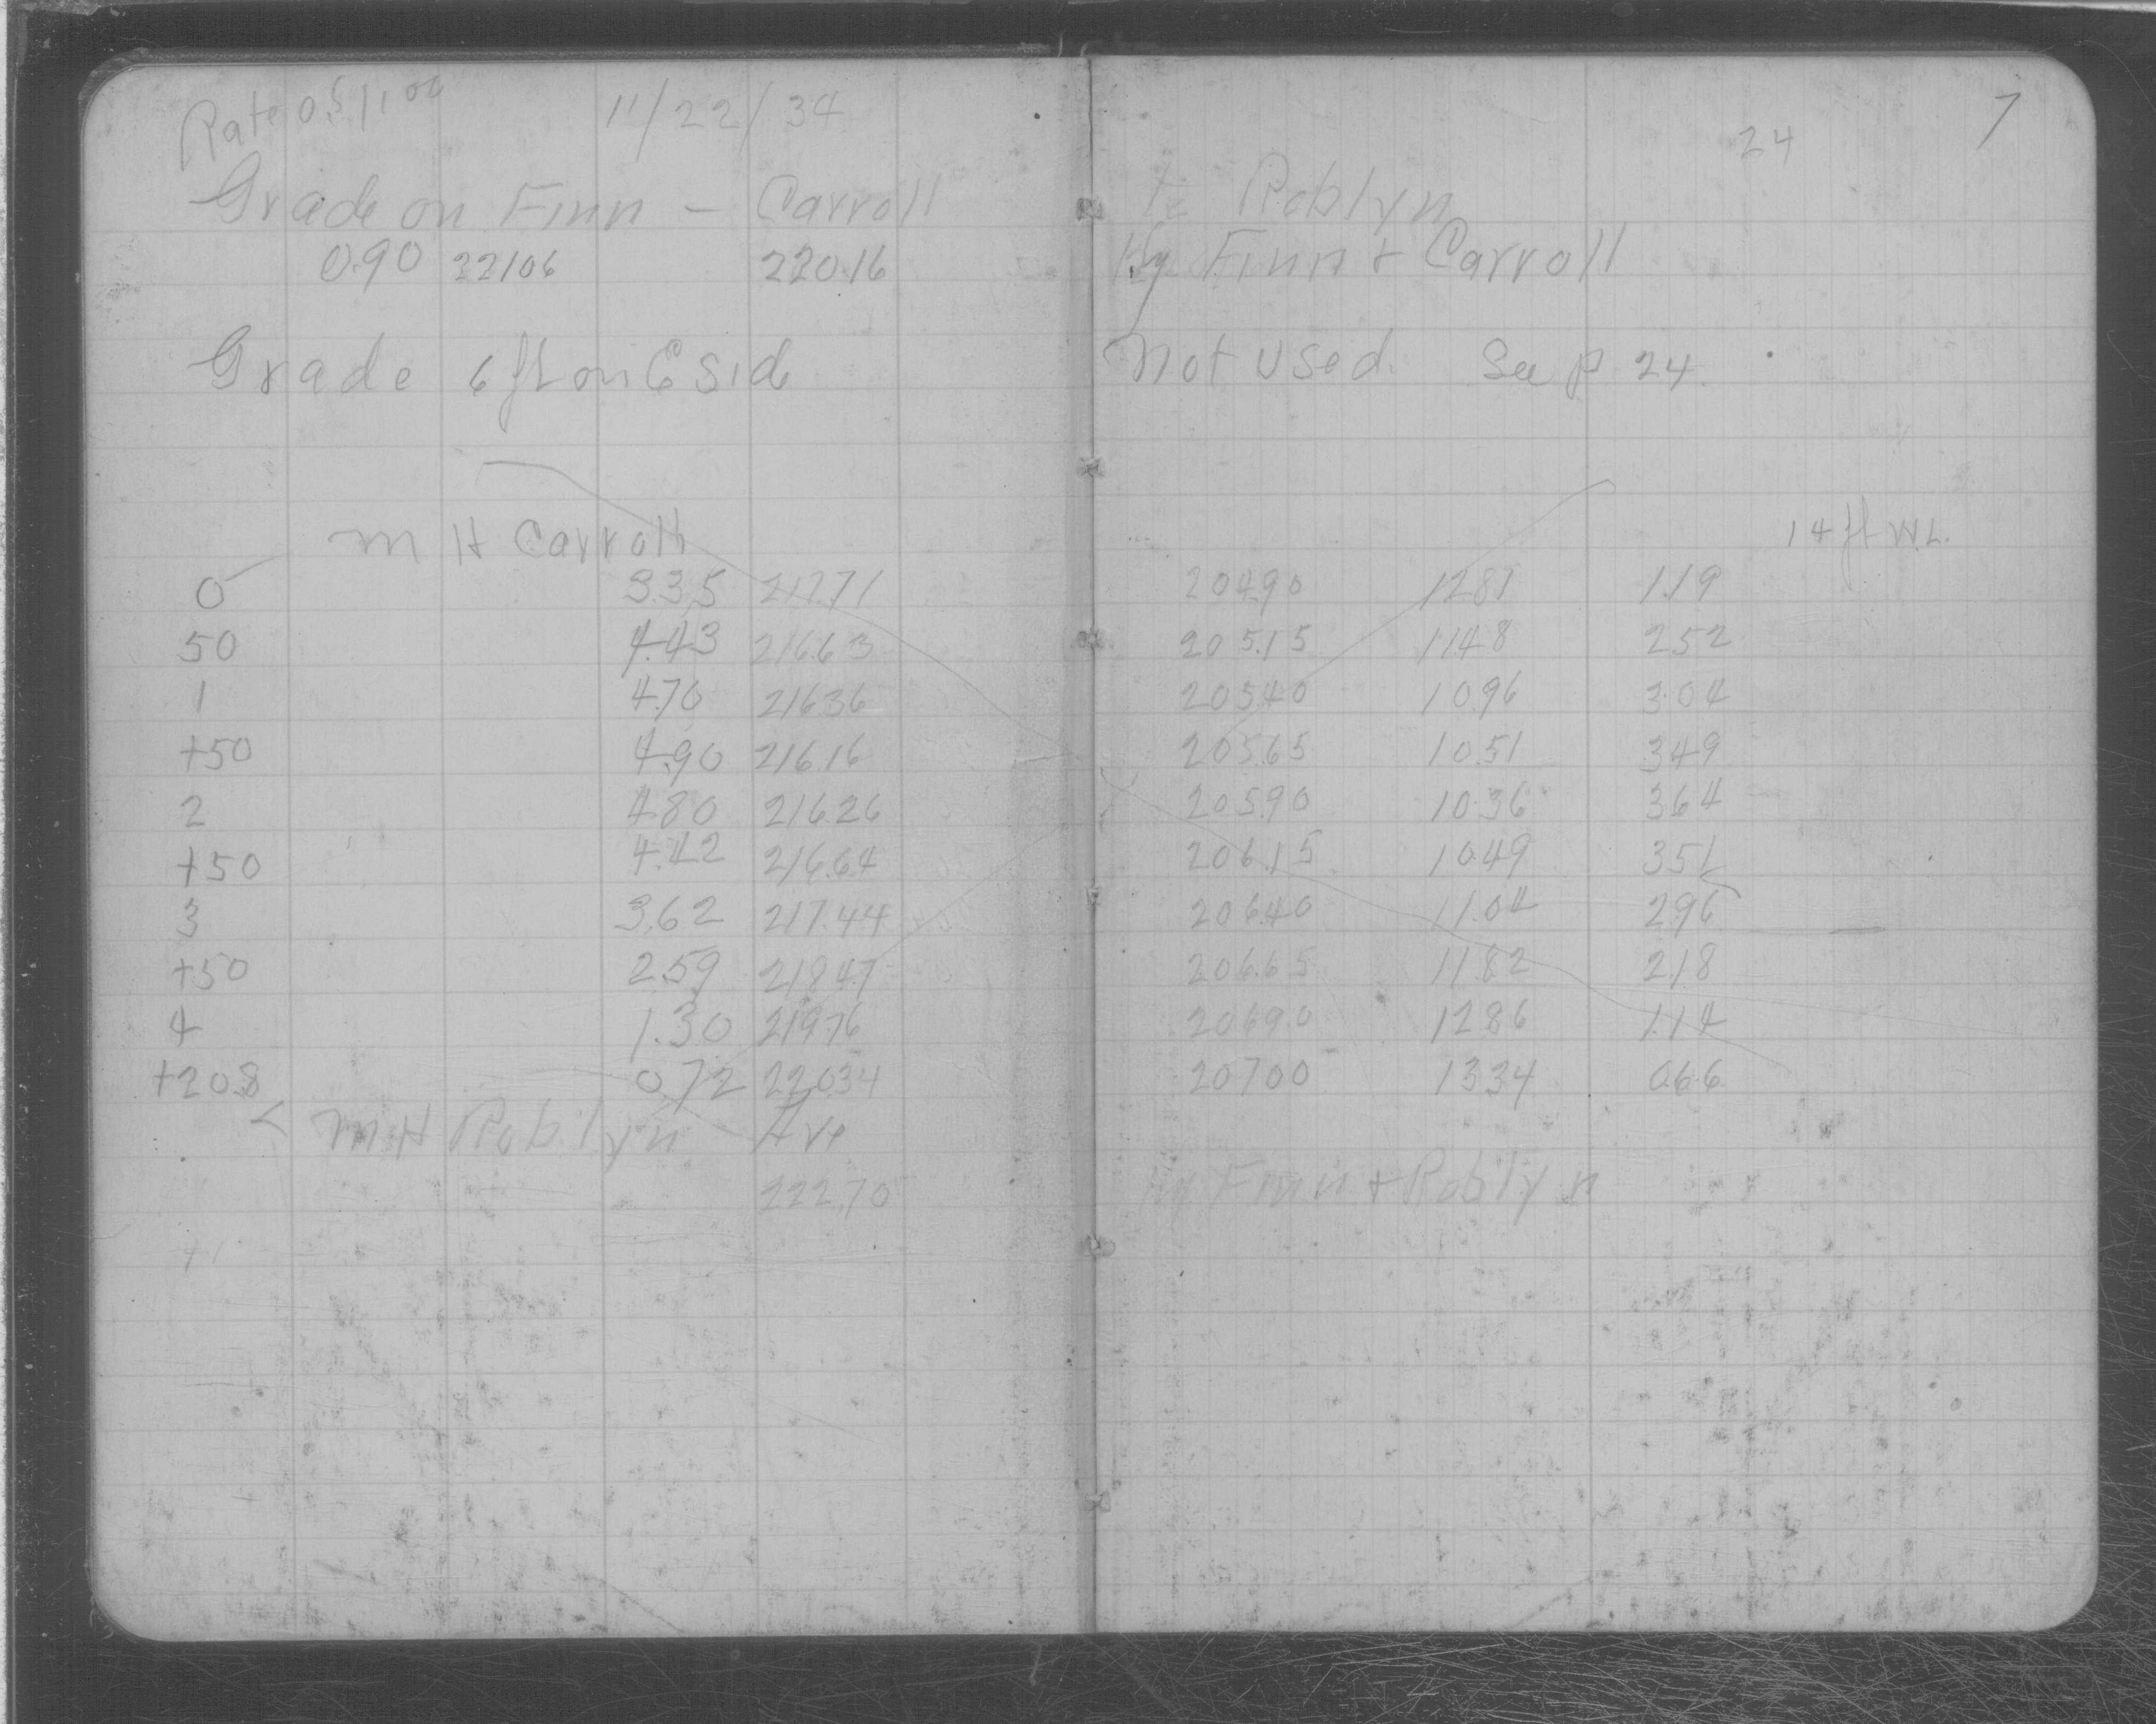 Rate 0.5/1.00 11/22/34
24 7
Grade on Finn - Carroll to Roblyn
0.90 221.06 220.16 Hy Finn + Carroll
Grade 6 ft on E Sid Not Used. See p 24.
M H Carroll 14 ft W.L.
0 3.35 217.71 204.90 12.81 1.19
50 4.43 216.63 205.15 11.48 2.52
1 4.70 216.36 205.40 10.96 3.04
+50 4.90 216.16 205.65 10.51 3.49
2 4.80 216.26 205.90 10.36 3.64
+50 4.42 216.64 206.15 10.49 3.51
3 3.62 217.44 206.40 11.04 2.96
+50 2.59 218.47 206.65 11.82 2.18
4 1.30 219.76 206.90 12.86 1.14
+20.8 0.72 220.34 207.00 13.34 0.66
MH Robilyn Ave
222.70 Hy Finn + Robilyn